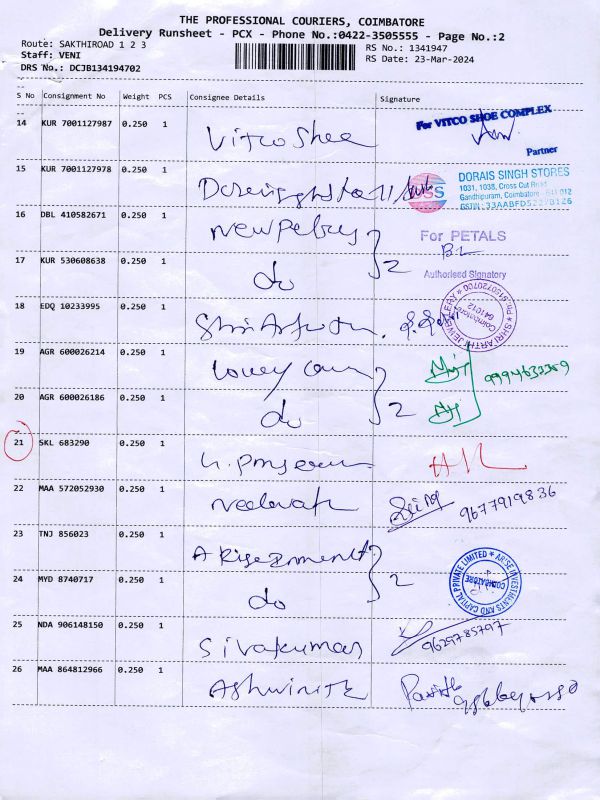 THE PROFESSIONAL COURIERS, COIMBATORE
Delivery Runsheet - PCX - Phone No.:0422-3505555 - Page No.:2
Route: SAKTHIROAD 1 2 3
RS No.: 1341947
Staff: VENI
RS Date: 23-Mar-2024
DRS No.: DCJB134194702
S No Consignment No Weight PCS Consignee Details Signature
14 KUR 7001127987 0.250 1 Vitco Shoe
For VITCO SHOE COMPLEX
Partner
15 KUR 7001127978 0.250 1
DORAIS SINGH STORES
1031, 1038, Cross Cut Road
Gandhipuram, Coimbatore - 641 012
16 DBL 410582671 0.250 1
For PETALS
17 KUR 530608638 0.250 1 do 2
Authorised Signatory
18 EDQ 10233995 0.250 1
SHRI ARTH JEWELLERY
Coimbatore
641012
19 AGR 600026214 0.250 1
20 AGR 600026186 0.250 1 do 2
21 SKL 683290 0.250 1
22 MAA 572052930 0.250 1 9677919836
23 TNJ 856023 0.250 1
ARISE INVESTMENTS AND CAPITAL PRIVATE LIMITED
COIMBATORE
24 MYD 8740717 0.250 1 do 2
25 NDA 906148150 0.250 1 Sivakumar 9629785797
26 MAA 864812966 0.250 1